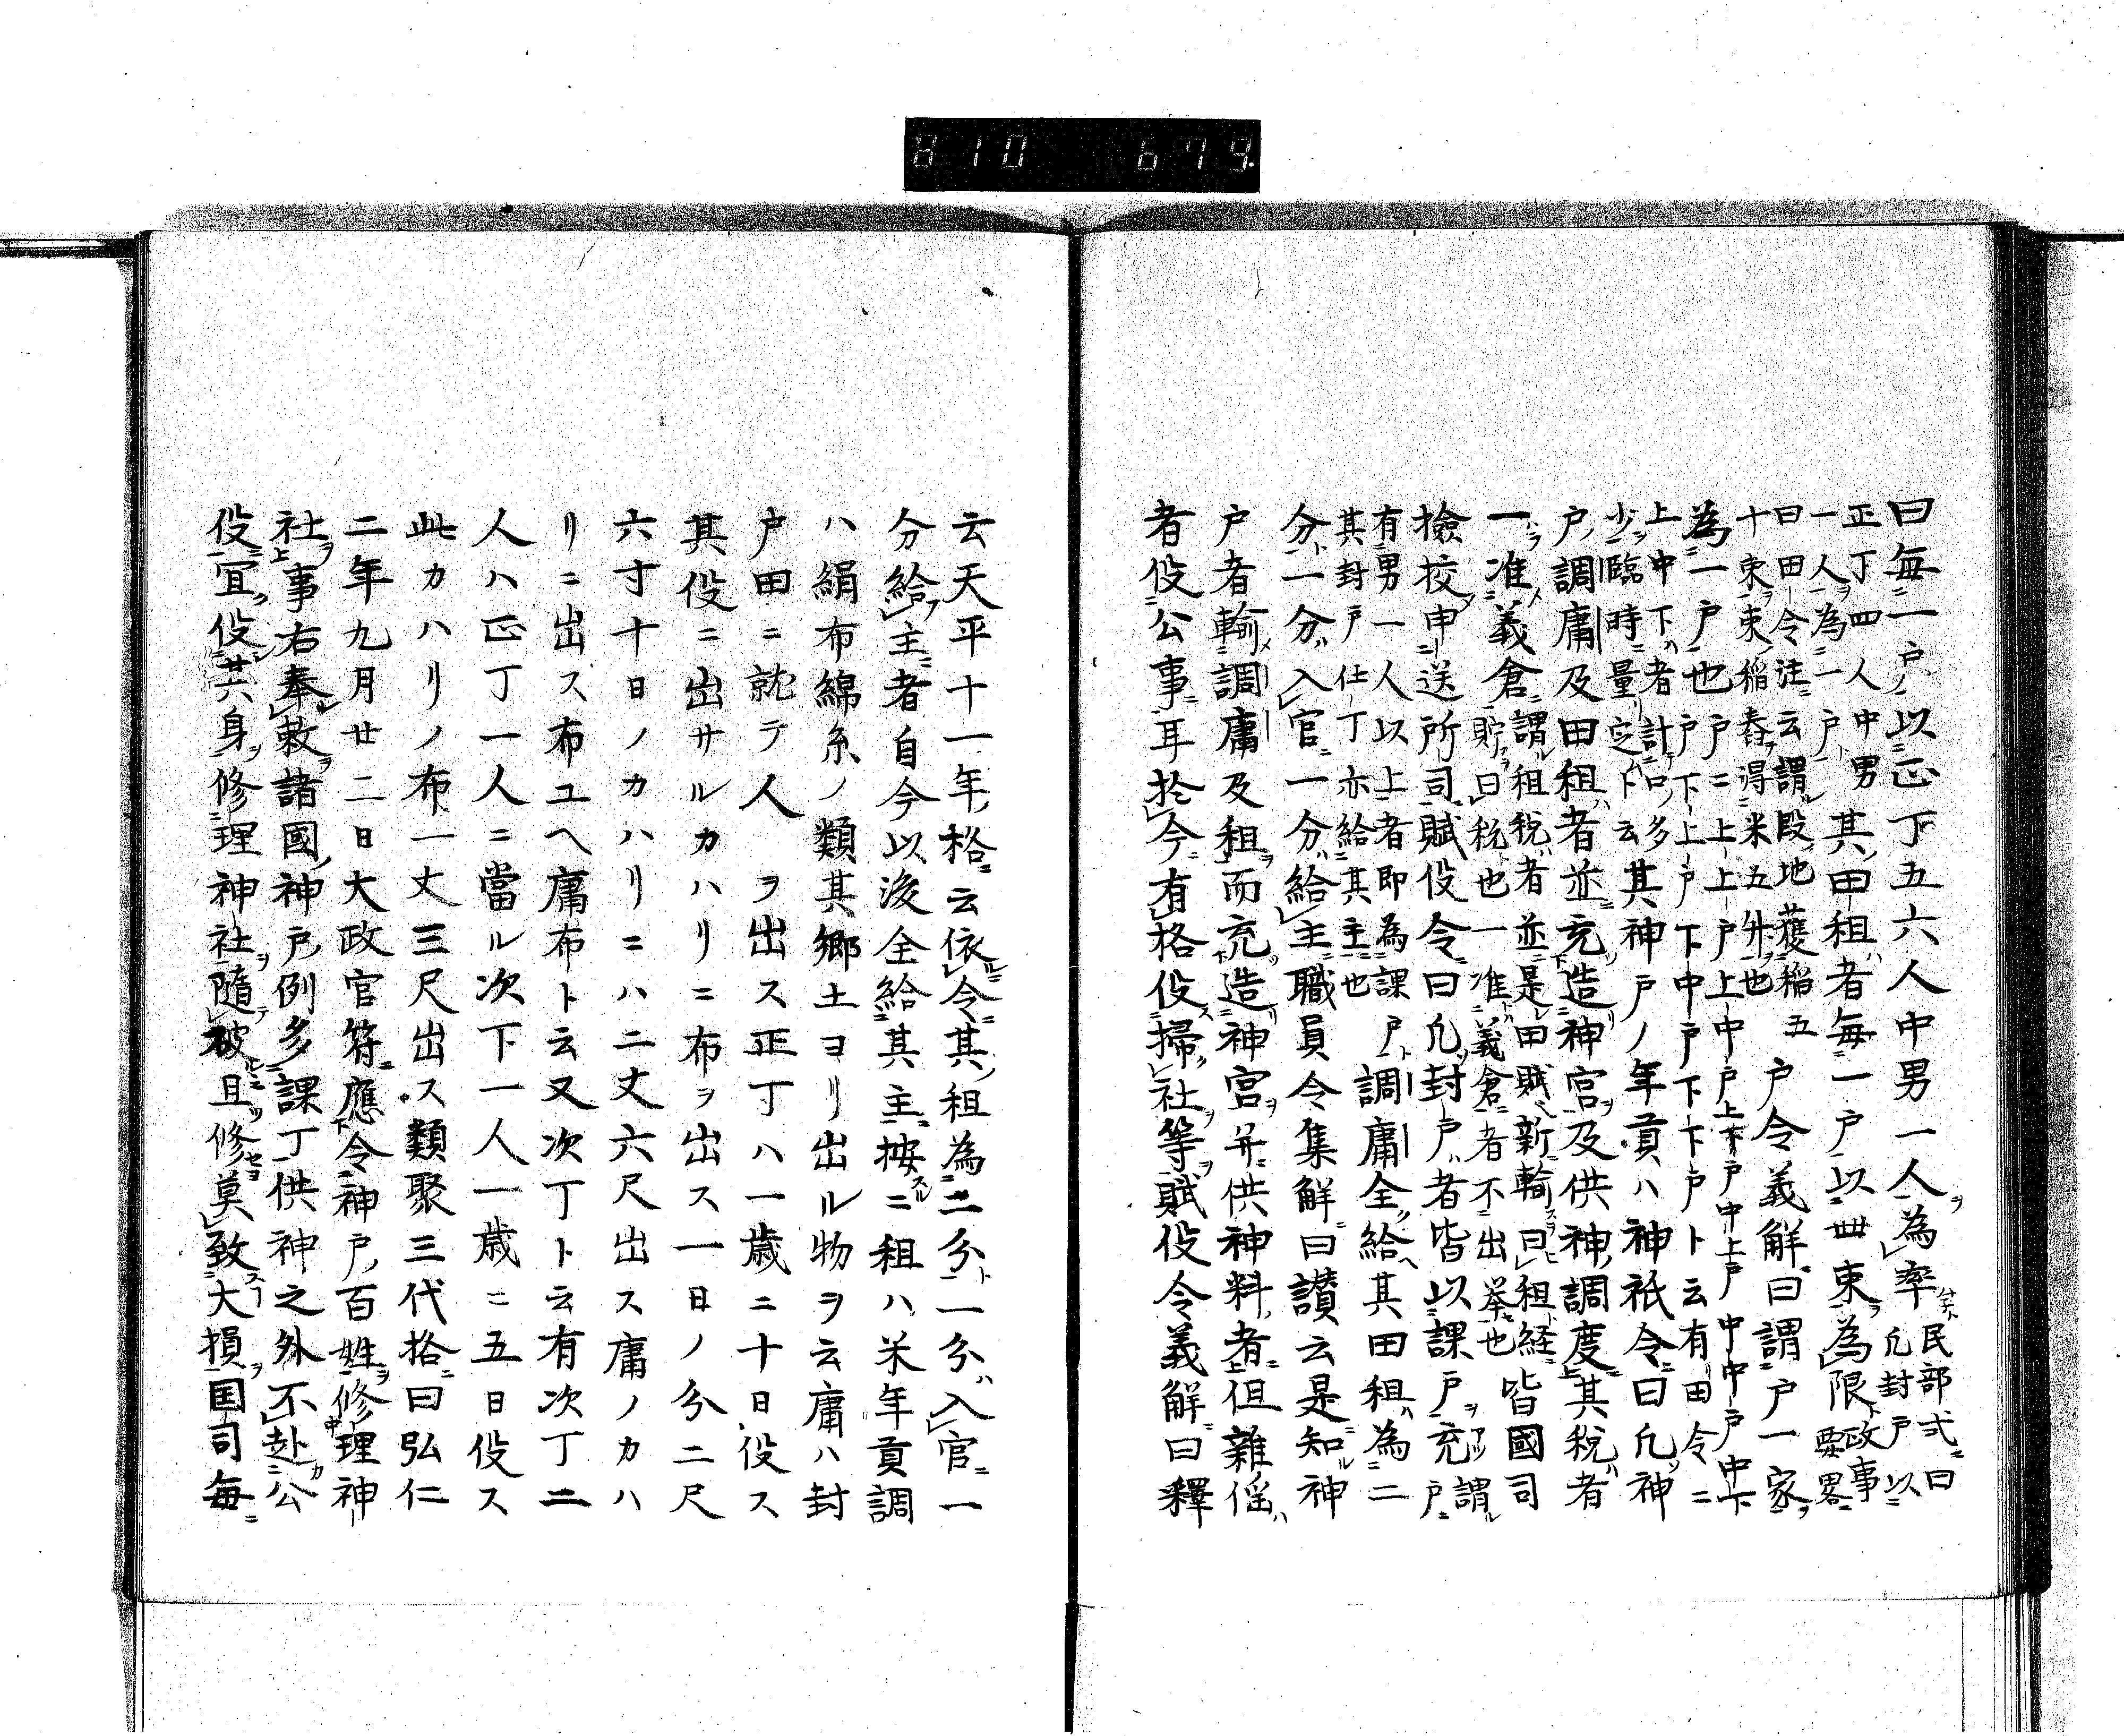 曰毎一戸以正丁五六人中男一人為率民部式曰凡封戸以
正丁四人中男一人為一戸其田租者毎一戸以丗束為限政事要畧
曰田令注云謂段地獲稲五十束束稲舂得米五舛也戸令義解曰謂戸一家
為一戸也戸ニ上上戸上中戸上下戸中上戸中中戸中下
戸下上戸下中戸下下戸ト云有田令ニ
上中下者計口多少臨時量定ト云其神戸ノ年貢ハ神祇令曰凡神
戸調庸及田租者並充造神宮及供神調度其税者
一准義倉謂租税者並是田賦新輸曰租経貯曰税也一准義倉者不出挙也皆國司
撿挍申送所司賦役令曰凡封戸者皆以課戸充謂戸
有男一人以上者即為課戸調庸全給其田租為二
其封戸仕丁亦給其主也
分一分入官一分給主職員令集解曰讃云是知神
戸者輸調庸及租而充造神宮并供神料者但雜徭
者役公事耳於今有格役掃社等賦役令義解曰釋
云天平十一年格云依令其租為二分一分入官一
分給主者自今以後全給其主按ニ租ハ米年貢調
ハ絹布綿糸ノ類其郷土ヨリ出ル物ヲ云庸ハ封
戸田ニ就テ人ヲ出ス正丁ハ一歳ニ十日役ス
其役ニ出サルカハリニ布ヲ出ス一日ノ分二尺
六寸十日ノカハリニハ二丈六尺出ス庸ノカハ
リニ出ス布ユヘ庸布ト云又次丁ト云有次丁二
人ハ正丁一人ニ當ル次下一人一歳ニ五日役ス
此カハリノ布一丈三尺出ス類聚三代格曰弘仁
二年九月廿二日大政官符應令神戸百姓修理神
社事右奉敕諸國神戸例多課丁供神之外不赴公
役宜役其身修理神社隨破且修莫致大損国司毎